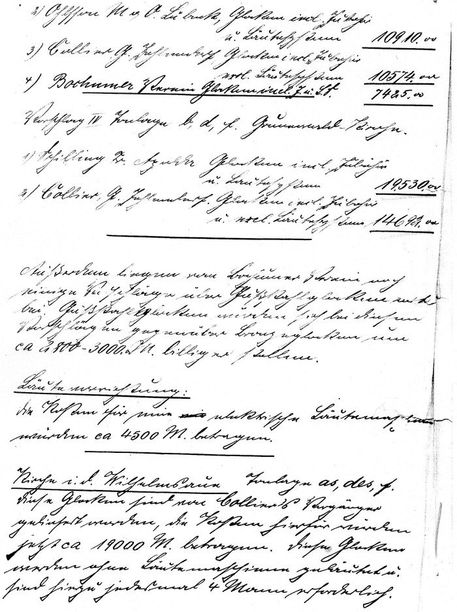 2) Ohlsson M. u. O. Lübeck, Glocken incl. Zubehör
u. Läutesystem 10910.00
3) Collier G. Zehlendorf Glocken incl. Zubehör
excl. Läutesystem 10574.00
4) Bochumer Verein Glocken incl. Z. u. LS. 7425.00
Vorschlag IV Tonlage b, d, f. Grunewald-Kirche.
1) Schilling Fr. Apolda Glocken incl. Zubehör
u. Läutesystem 19530.00
2) Collier, G. Zehlendorf. Glocken incl. Zubehör
u. excl. Läutesystem 14693.00
Außerdem liegen vom Bochumer Verein noch
einige Vorschläge über Gußstahlglocken
bei. Gußstahlglocken würden sich bei diesen
Vorschlägen gegenüber Bronzeglocken um
ca 1800-3000. M. billiger stellen.
Läutevorrichtung:
die Kosten für eine elektrische Läutemaschine
würden ca 4500 M. betragen.
Kirche i. d. Wilhelmsaue Tonlage as, des, f.
diese Glocken sind von Colliers Vorgänger
geliefert worden, die Kosten hierfür würden
jetzt ca 19000 M. betragen. Diese Glocken
werden ohne Läutemaschine geläutet u.
sind hiezu jedesmal 4 Mann erforderlich.